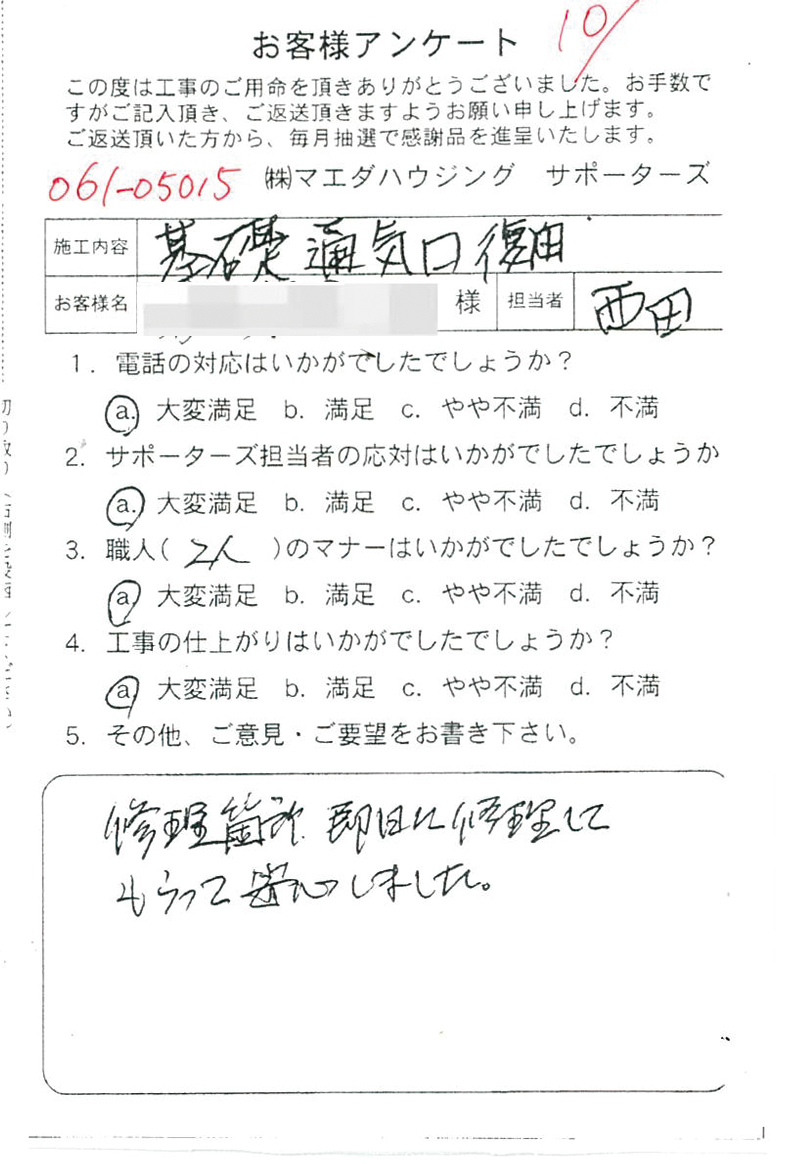 お客様アンケート
10/
この度は工事のご用命を頂きありがとうございました。お手数で
すがご記入頂き、ご返送頂きますようお願い申し上げます。
ご返送頂いた方から、毎月抽選で感謝品を進呈いたします。
061-05015 ㈱マエダハウジング サポーターズ
施工内容 基礎通気口復旧
お客様名 様 担当者 西田
1. 電話の対応はいかがでしたでしょうか?
a. 大変満足 b. 満足 c. やや不満 d. 不満
2. サポーターズ担当者の応対はいかがでしたでしょうか
a. 大変満足 b. 満足 c. やや不満 d. 不満
3. 職人( 2人 )のマナーはいかがでしたでしょうか?
a. 大変満足 b. 満足 c. やや不満 d. 不満
4. 工事の仕上がりはいかがでしたでしょうか?
a. 大変満足 b. 満足 c. やや不満 d. 不満
5. その他、ご意見・ご要望をお書き下さい。
修理箇所 即日に修理して
もらって安心しました。